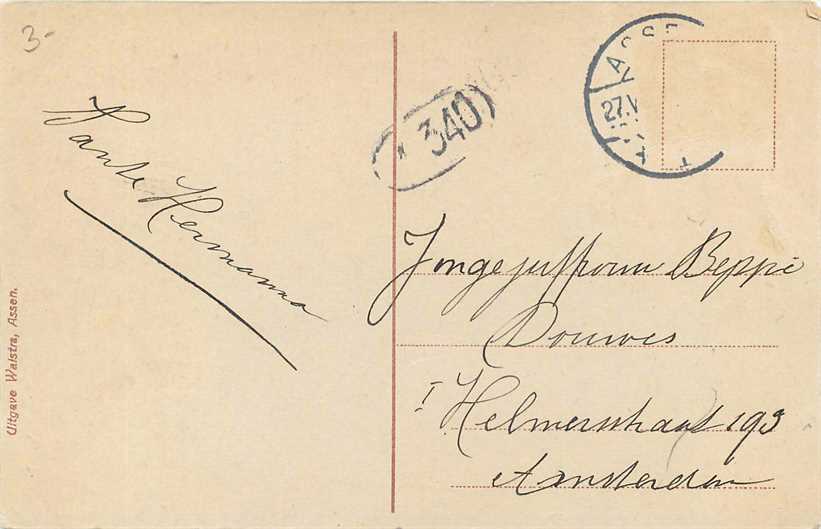 3-
ASSE
27.V
340
Tante Hermanna
Jongejuffrouw Beppie
Douwes
I Helmersstraat 193
Amsterdam
Uitgave Walstra, Assen.